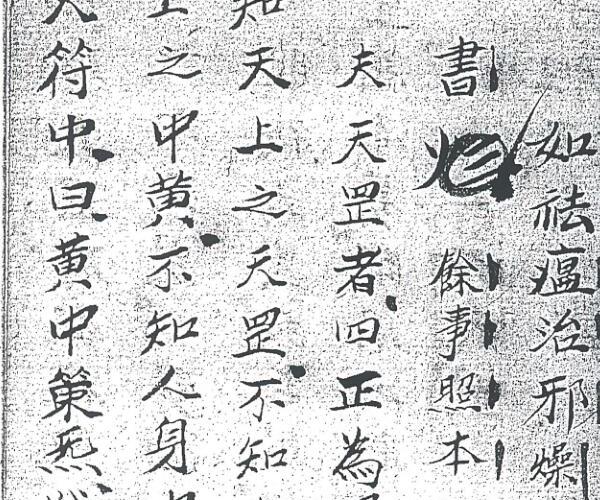 如祛瘟治邪燥
書 餘事照本
夫天罡者四正為
知天上之天罡不知
上之中黃不知人身
天符中曰黃中策炁